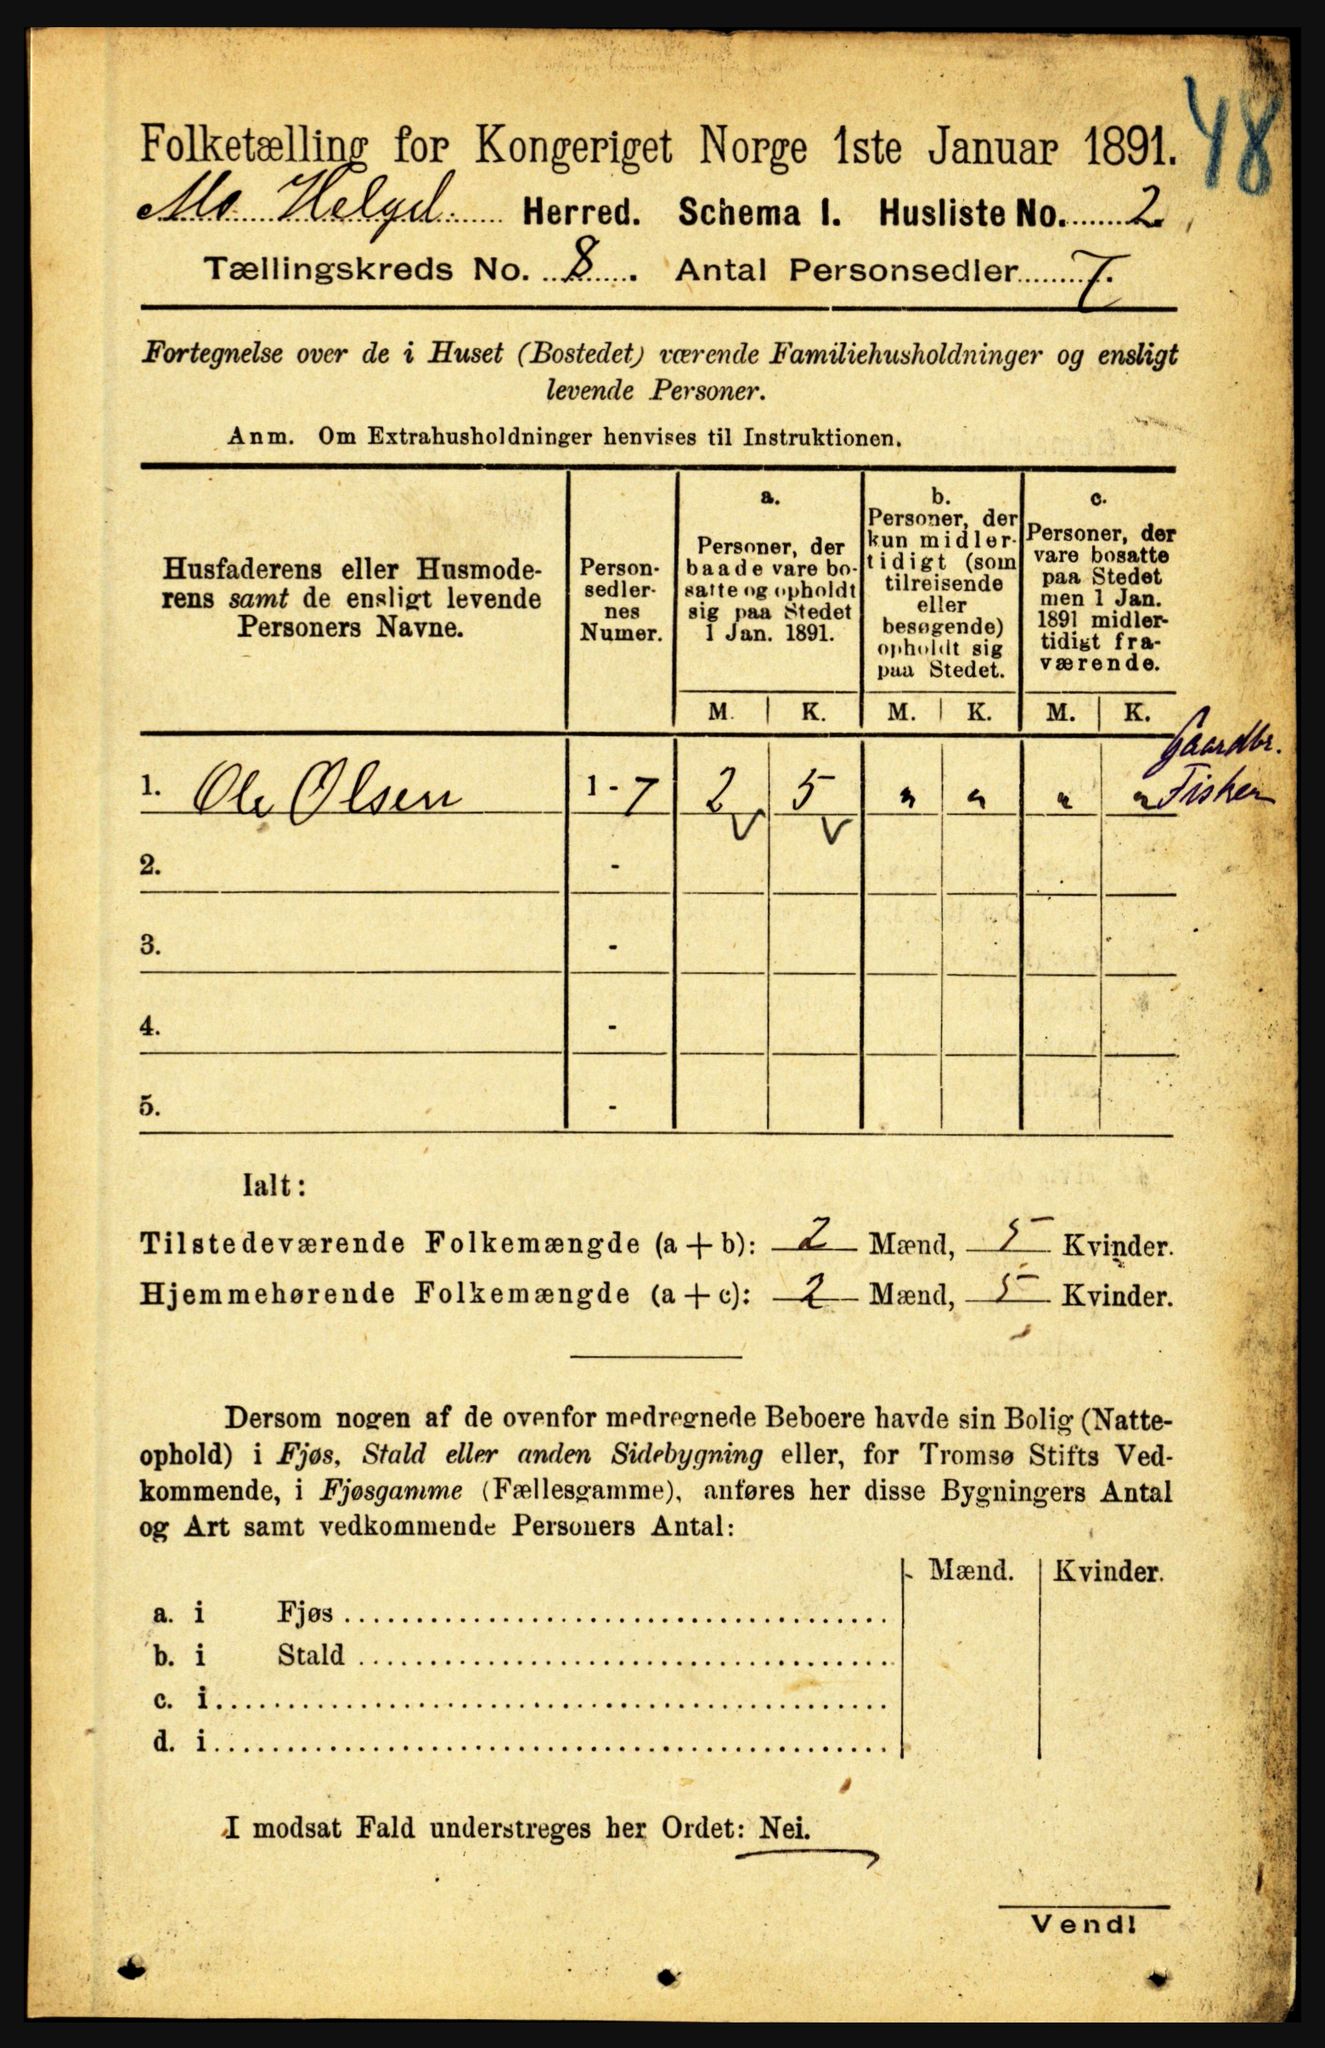 48
Folketælling for Kongeriget Norge 1ste Januar 1891.
Mo Helgel. Herred. Schema 1. Husliste No. 2
Tællingskreds No. 8. Antal Personsedler 7.
Fortegnelse over de i Huset (Bostedet) værende Familiehusholdninger og ensligt
levende Personer.
Anm. Om Extrahusholdninger henvises til Instruktionen.
Husfaderens eller Husmode-
rens samt de ensligt levende
Personers Navne.
Person-
sedler-
nes
Numer.
a.
Personer, der
baade vare bo-
satte og opholdt
sig paa Stedet
1 Jan. 1891.
b.
Personer, der
kun midler-
tidigt (som
tilreisende
eller
besøgende)
opholdt sig
paa Stedet.
c.
Personer, der
vare bosatte
paa Stedet
men 1 Jan.
1891 midler-
tidigt fra-
værende.
M. K. M. K. M. K.
Gaardbr.
1. Ole Olsen 1 - 7 2 5 " " " " Fisker
2. -
3. -
4. -
5. -
Ialt:
Tilstedeværende Folkemængde (a + b): 2 Mænd, 5 Kvinder.
Hjemmehørende Folkemængde (a + c): 2 Mænd, 5 Kvinder.
Dersom nogen af de ovenfor medregnede Beboere havde sin Bolig (Natte-
ophold) i Fjøs, Stald eller anden Sidebygning eller, for Tromsø Stifts Ved-
kommende, i Fjøsgamme (Fællesgamme), anføres her disse Bygningers Antal
og Art samt vedkommende Personers Antal:
Mænd. Kvinder.
a. i Fjøs
b. i Stald
c. i
d. i
I modsat Fald understreges her Ordet: Nei.
Vend!